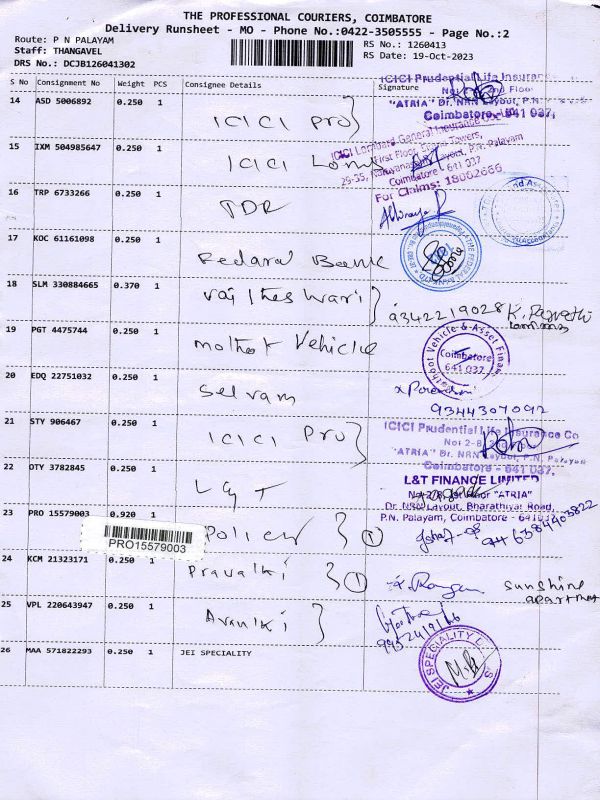 THE PROFESSIONAL COURIERS, COIMBATORE
Delivery Runsheet - MO - Phone No.:0422-3505555 - Page No.:2
Route: P N PALAYAM
Staff: THANGAVEL
DRS No.: DCJB126041302
RS No.: 1260413
RS Date: 19-Oct-2023
S No Consignment No Weight PCS Consignee Details Signature
ICICI Prudential Life Insuranc
"ATRIA" Dr. NRN Layout, P.N.
Coimbatore - 641 037.
14 ASD 5006892 0.250 1
ICICI Pro}
15 IXM 504985647 0.250 1
ICICI Lom
ICICI Lombard General Insurance
First Floor, Towers,
Layout, P.N. Palayam
Coimbatore 641 037
For Claims: 18002666
16 TRP 6733266 0.250 1
TDR
17 KOC 61161098 0.250 1
Federal Bank
18 SLM 330884665 0.370 1
Raj theshwari}
9342219028
19 PGT 4475744 0.250 1
mothot Vehicle
Vehicle & Asset Finan
Coimbatore
641 037
20 EDQ 22751032 0.250 1
Selvam
9344307092
21 STY 906467 0.250 1
ICICI Pro}
ICICI Prudential Life Insurance Co
"ATRIA" Dr. NRN Layout, P.N. Palayam
Coimbatore - 641 037.
22 OTY 3782845 0.250 1
L&T
L&T FINANCE LIMITED
"ATRIA"
Dr. NRN Layout, Bharathiyar Road,
P.N. Palayam, Coimbatore - 641037
23 PRO 15579003 0.920 1
Police } 1
6384903822
PRO15579003
24 KCM 21323171 0.250 1
Pravalki } 1
sunshine
apartment
25 VPL 220643947 0.250 1
Avanlki }
9952419166
26 MAA 571822293 0.250 1 JEI SPECIALITY
JEI SPECIALITY